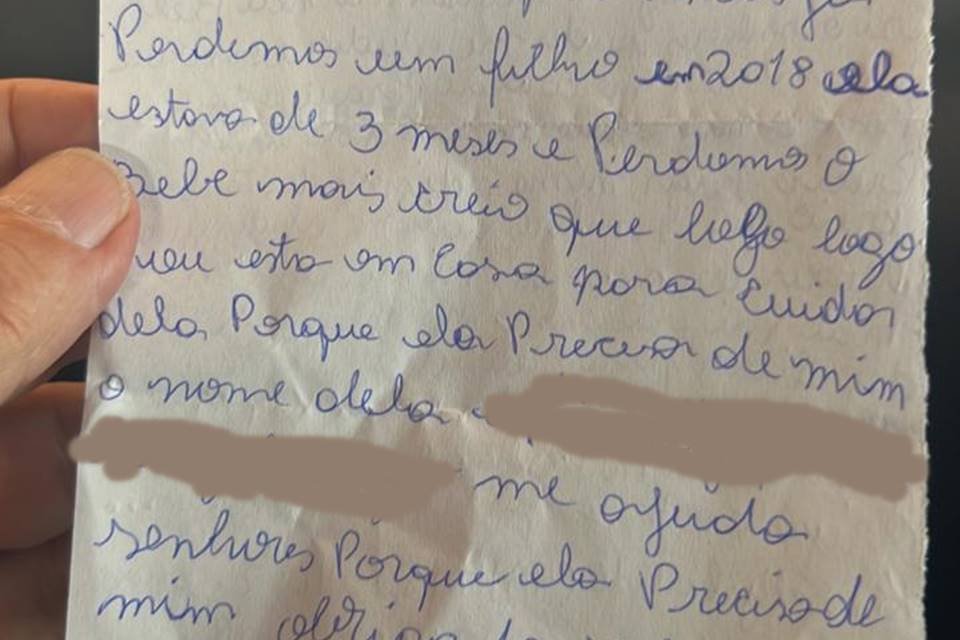 Perdemos um filho em 2018 ela
estava de 3 meses e Perdemos o
Bebe mais creio que logo logo
vou esta em Casa para Cuidar
dela Porque ela Precisa de mim
o nome dela
me ajuda
senhores Porque ela Precisa de
mim